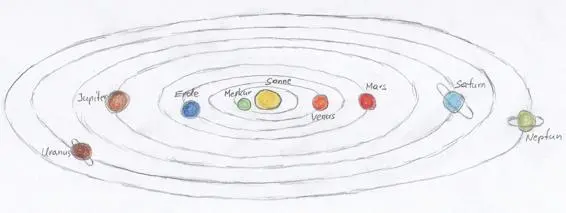 Sonne
Merkur
Erde
Jupiter
Uranus
Venus
Mars
Saturn
Neptun